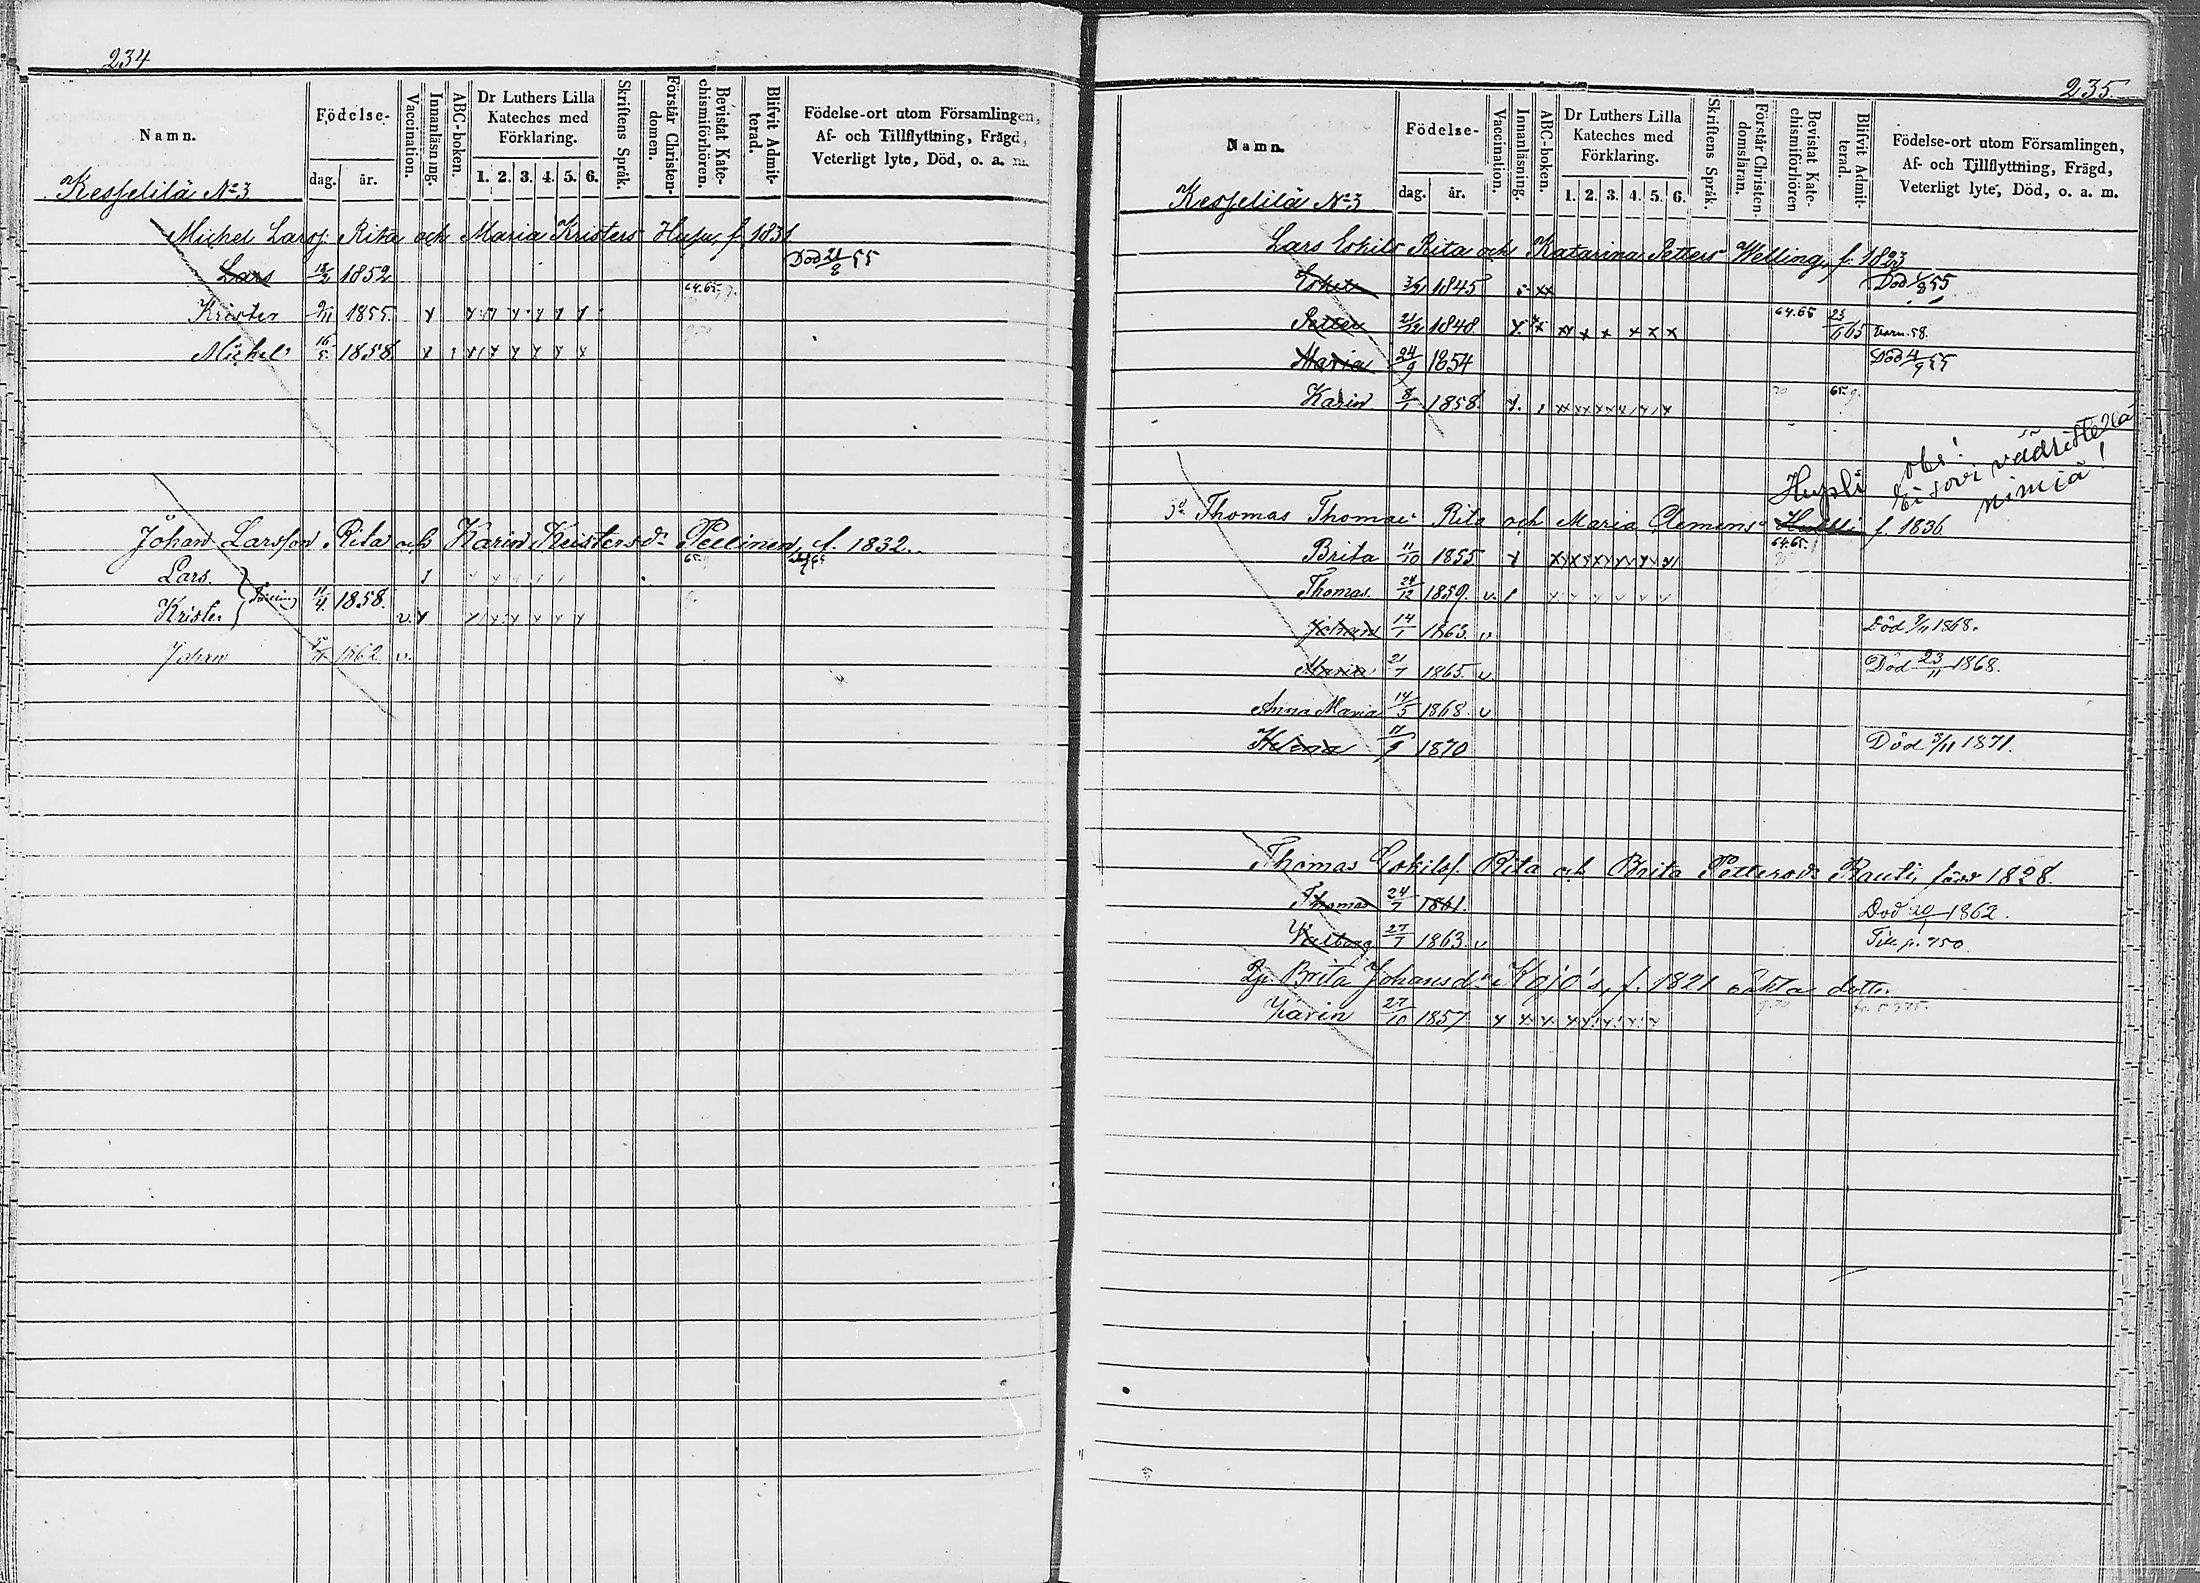 234
Namn.
Födelse-
dag. år.
Vaccination.
Innanläsning.
ABC-boken.
Dr Luthers Lilla
Kateches med
Förklaring.
1. 2. 3. 4. 5. 6.
Skriftens Språk.
Förstår Christen-
domen.
Bevistat Kate-
chismiförhören.
Blifvit Admit-
terad.
Födelse-ort utom Församlingen,
Af- och Tillflyttning, Frägd,
Veterligt lyte, Död, o. a. m.
Kesselilä No 3
Michel Larss. Rita och Maria Kristers f. 1831
Lars 1852 Död 55
64.65.
Krister 1855
Michel 16/5 1858
Johan Larsson Rita och Karin Kristersdr Pellinen, f. 1832.
Lars. 65
Krister 11/4 1858. v.
Johan 1862 v.
235.
Namn.
Födelse-
dag. år.
Vaccination.
Innanläsning.
ABC-boken.
Dr Luthers Lilla
Kateches med
Förklaring.
1. 2. 3. 4. 5. 6.
Skriftens Språk.
Förstår Christen-
domsläran.
Bevistat Kate-
chismiförhören
Blifvit Admit-
terad.
Födelse-ort utom Församlingen,
Af- och Tillflyttning, Frägd,
Veterligt lyte, Död, o. a. m.
Kesselilä No 3
Lars Eskils Rita och Katarina Petters Welling, f. 1823
Eskil 1845 Död 55
Petter 1848 64.65 23/6 65
Maria 24/9 1854 Död 4/9 55
Karin 8/1 1858. 65
obs!
Ei sovi vääristellä
nimiä!
Hupli
Thomas Thomae Rita och Maria Clemens f. 1836.
64.65.
Brita 11/10 1855
Thomas. 24/12 1859. v.
Johan 14/1 1863. v Död 9/11 1868.
Maria 21/7 1865. v. Död 23/11 1868.
Anna Maria 14/5 1868. v
Helena 11/9 1870 Död 3/11 1871.
Thomas Eskilss. Rita och Brita Pettersdr Rauti, född 1828.
Thomas 24/7 1861. Död 20/1 1862.
Walborg 27/7 1863. v Till p. 750
Brita Johansdr Kojo's, f. 1821 oäkta dotter
Karin 27/10 1857